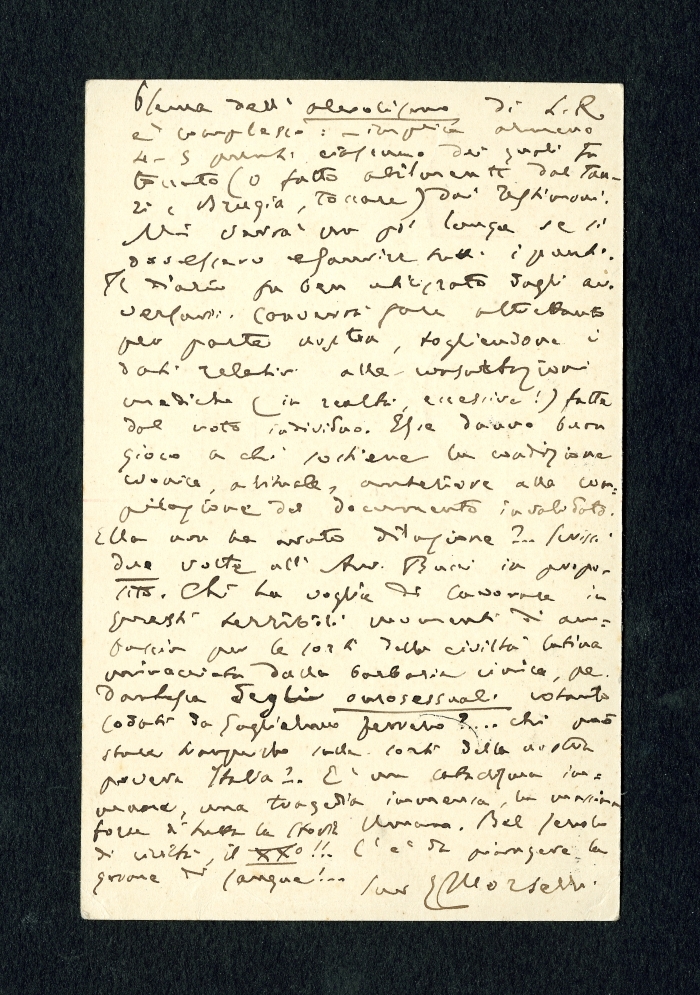 dell' alcoolismo di L. R.
è complesso: implica almeno
4-5 punti ciascuno dei quali fu
toccato (o fatto abilmente dal Tan-
zi e Brugia, toccare) dai testimoni.
Mi sarà un po' lunga se si
dovessero esaurire tutti i punti.
Il diario fu ben utilizzato dagli av-
versari. Converrà fare altrettanto
per parte nostra, togliendone i
dati relativi alle consultazioni
mediche (in realtà, eccessive!) fatte
dal noto individuo. Esse danno buon
gioco a chi sostiene la condizione
cronica, abituale, anteriore alla com-
pilazione del documento invalidato.
Ella non ha avuto dilazione?.. Scrissi
due volte all' Avv. Buai in propo-
sito. Chi ha voglia di lavorare in
questi terribili momenti di am-
bascia per le sorti della civiltà latina
minacciata dalla barbarie cinica, pe-
dantesca degli omosessuali
da Guglielmo ferrero?... Chi può
stare tranquillo sulla sorte della nostra
povera Italia?.. E' una im-
mane, una tragedia immensa, la massima
forse di tutta la storia Umana. Bel secolo
di civiltà, il XXo!!. C'è da piangere
di sangue!.. Suo EMorselli.